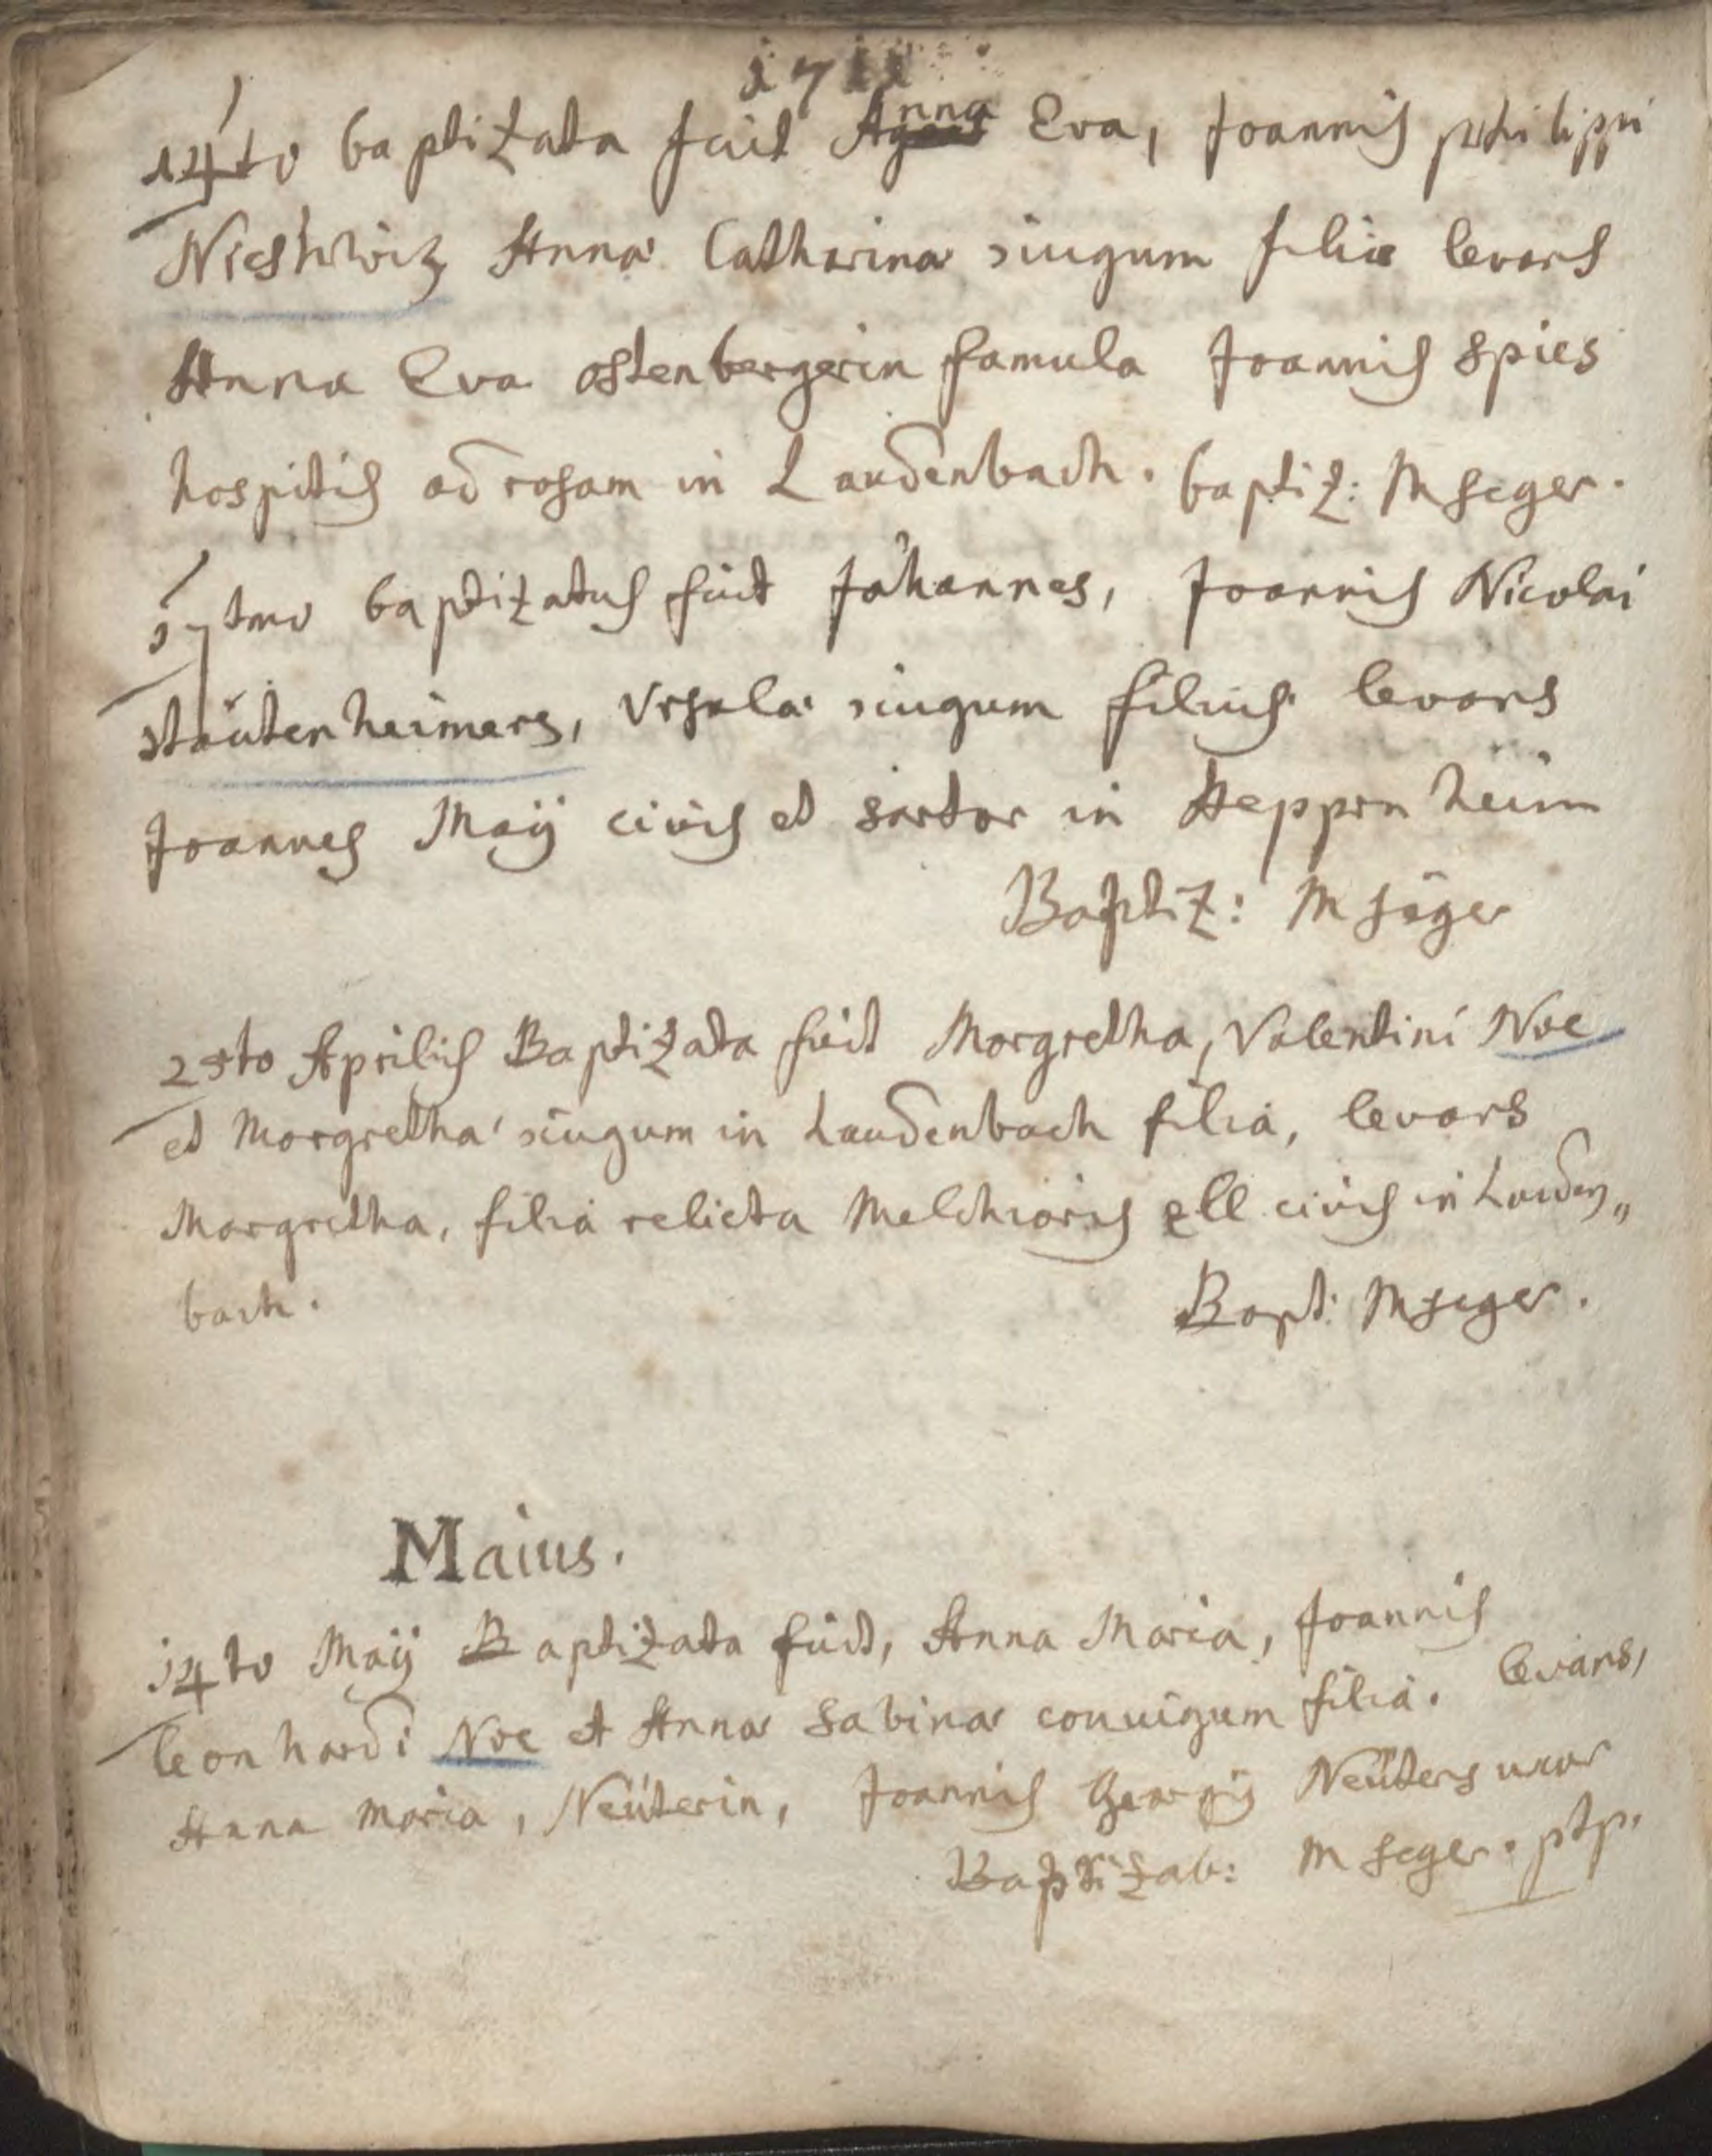 1711
14to baptizata fuit Anna Eva, Joannis philippi
Nieshwitz Annæ Catharinæ iugum filia levans
Anna Eva ostenbergerin famula Joannis Spies
hospitis ad rosam in Laudenbach. baptiz: M Seger.
17tmo baptizatus fuit Johannes, Joannis Nicolai
stautenheimers, Ursulæ iugum filius levans
Joannes Maÿ civis et sartor in Heppenheim
Baptiz: M Seger
25to Aprilis Baptizata fuit Margretha, Valentini Noe
et Margretha iugum in Laudenbach filia, levans
Margretha, filia relicta Melchioris ell civis in Lauden„
bach.
Bapt: M Seger.
Maius.
14to Maÿ Baptizata fuit, Anna Maria, Joannis
leonhardi Noe et Annæ Sabinæ coniugum filia. levans,
Anna maria, Neüterin, Joannis Georgÿ Neüters uxor
Baptizab: M Seger. ptp.